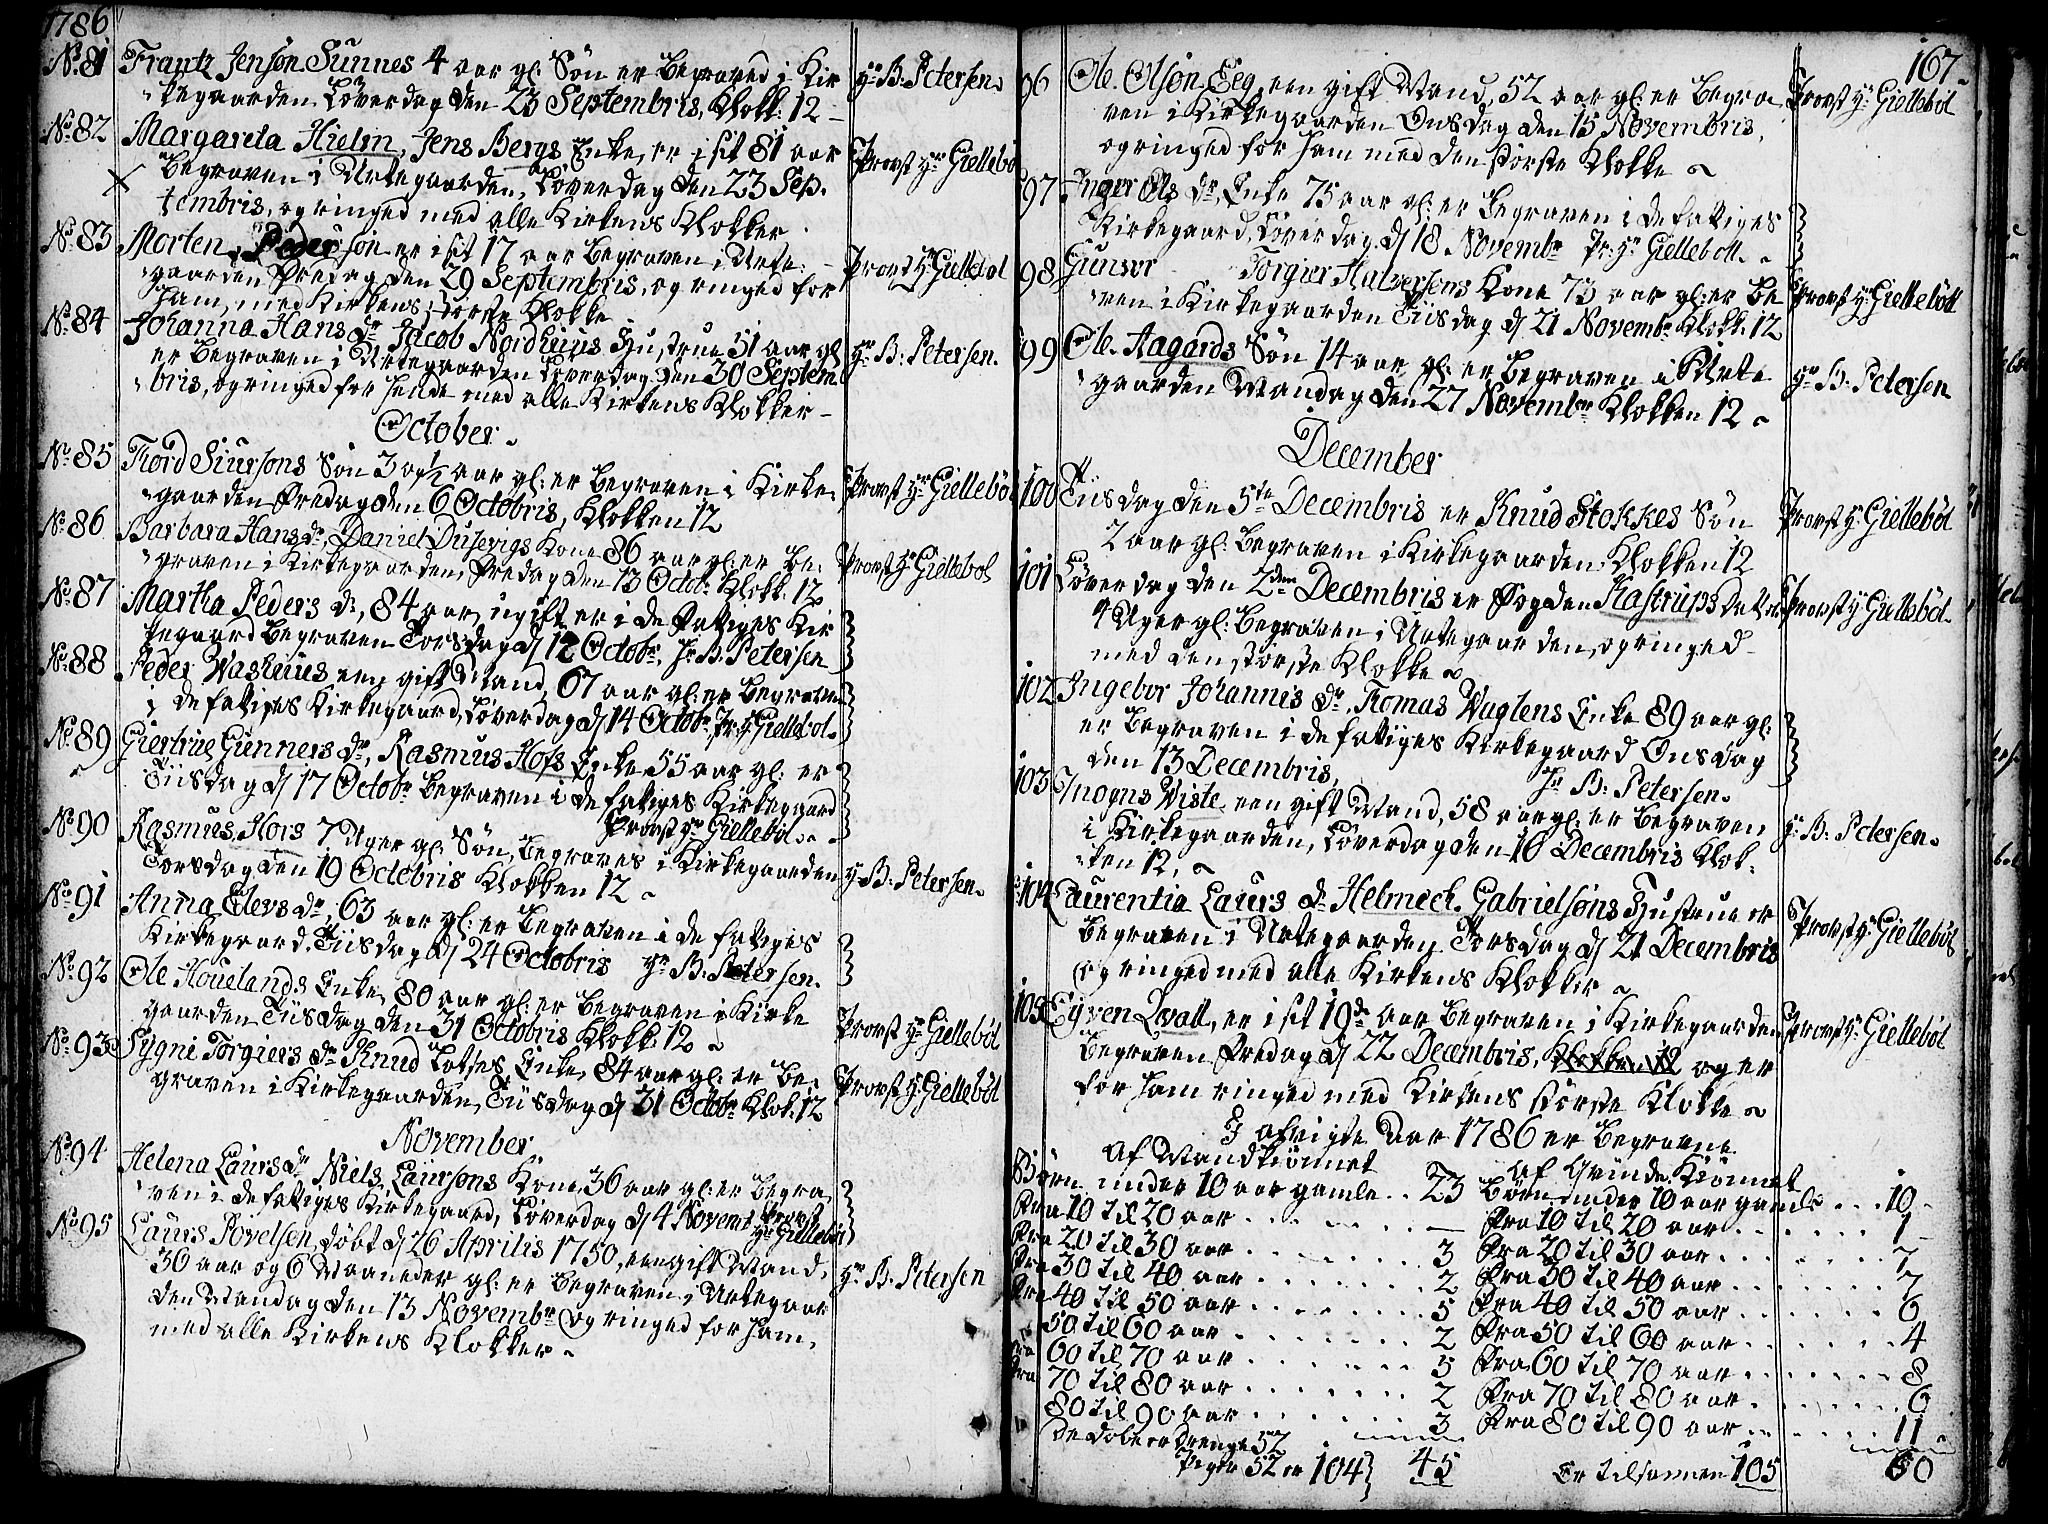 1786
No. 81 Frantz Jensøn Sunnes 4 aar gl: Søn er Begraved i Kir
kegaarden Løverdag den 23 Septembris, Klokk: 12 Hr B. Petersen.
No. 82 Margareta Hielm, Jens Bergs Enke, er i sit 81 aar
Begraven i Urtegaarden, Løverdag den 23 Sep- Provst Hr Giellebøl
tembris, og ringed med alle Kirkens Klokker.
No. 83 Morten Pedersøn er i sit 17 aar Begraven i Urte-
gaarden Fredag den 29 Septembris, og ringed for Provst Hr Giellebøl
Ham, med Kirkens største Klokke
No. 84 Johanna Hans dr Jacob Nordhuus Hustrue 51 aar gl
er Begraven i Urtegaarden Løverdag den 30 Septem- Hr B: Petersen.
bris, og ringed for Hende med alle Kirkens Klokker
October
No. 85 Tord Siursons Søn 3 og 1/2 aar gl: er Begraven i Kirke-
gaarden Fredag den 6 Octobris, Klokken 12 Provst Hr Giellebøl
No. 86 Barbara Hans dr, Daniel Dusevigs Kone 86 aar gl: er Be-
graven i Kirkegaarden, Fredag den 13 Octobr Klokk: 12 Provst Hr Giellebøl
No. 87 Martha Peders dr, 84 aar, ugift er i de Fattiges Kir
kegaard Begraven Torsdag d/ 12 Octobr, Hr B. Petersen
No. 88 Peder Vashuus een gift Mand, 67 aar gl: er Begraven
i de fattiges Kirkegaard, Løverdag d/ 14 Octobr Pr: Hr Giellebøl.
No. 89 Giertrue Gunners dr, Rasmus Hofs Enke 55 aar gl: er
Tiisdag d/ 17 Octobr Begraven i de fattiges Kirkegaard
Provst Hr Giellebøl
No. 90 Rasmus Hors 7 Uger gl: Søn, Begraves i Kirkegaarden
Torsdag den 19 Octobris Klokken 12 Hr B: Petersen.
No. 91 Anna Elevs dr, 63 aar gl: er Begraven i de fattiges
Kirkegaard. Tiisdag d/ 24 Octobris Hr B: Petersen.
No. 92 Ole Houelands Enke, 80 aar gl: er Begraven i Kirke
gaarden Tiisdag den 31 Octobris Klokk: 12 Provst Hr Giellebøl
No. 93 Sygni Torgiers dr Knud Enke, 84 aar gl: er Be-
graven i Kirkegaarden, Tiisdag d/ 31 Octobr Klok. 12 Provst Hr Giellebøl
November
No. 94 Helena Laurs dr Niels Laursons Kone, 36 aar gl: er Begra
ven i de fattiges Kirkegaard, Løverdag d/ 4 Novemb Provst
Hr Giellebøl
No. 95 Laurs Povelsen, døbt d/ 26 Aprilis 1750, een gift Mand,
36 aar og 6 Maaneder gl: er Begraven i Urtegaar Hr B. Petersen
den Mandag den 13 Novembr og ringed for Ham,
med alle Kirkens Klokker
167
96 Ole Olsøn Eeg, een gift Mand, 52 aar gl: er Begra
ven i Kirkegaarden Onsdag den 15 Novembris, Provst Hr Giellebøl
og ringed for Ham med den største Klokke
97 Inger Ols dr, Enke 75 aar gl: er Begraven i de fattiges
Kirkegaard, Løverdag d/ 18 Novembr Pr: Hr Giellebøl.
98 Gunvor Torgier Halversens Kone 73 aar gl: er Be
ven i Kirkegaarden Tiisdag d/ 21 Novembr Klokk: 12 Provst Hr Giellebøll
99 Ole Aagards Søn 14 aar gl: er Begraven i Urte
gaarden Mandag den 27 Novembr Klokken 12 Hr B: Petersen
December
100 Tiisdag den 5te Decembris er Knud Stokkes Søn
2 aar gl: Begraven i Kirkegaarden Klokken 12 Provst Hr Giellebøl
101 Løverdag den 2den Decembris er Fogden Kastrups Datter
4 Uger gl: Begraven i Urtegaarden, og ringed Provst Hr Giellebøl.
med den største Klokke
102 Ingebor Johannis dr, Tomas Vagtens Enke 89 aar gl:
er Begraven i de fattiges Kirkegaard Onsdag
den 13 Decembris, Hr B: Petersen.
103 Mogns Viste, een gift Mand, 58 aar gl: er Begraven
i Kirkegaarden, Løverdag den 16 Decembris Klok- Hr B: Petersen.
ken 12,
104 Laurentia Laurs dr Helmeck Gabrielsøns Hustrue er
Begraven i Urtegaarden Torsdag d/ 21 Decembris Provst Hr Giellebøl
og ringed med alle Kirkens Klokker
105 Eyven Qvall, er i sit 19de aar Begraven i Kirkegaarden
Begraven Fredag d/ 22 Decembris, Klokken 12 og er Provst Hr Giellebøl
for Ham ringed med Kirkens største Klokke
I afvigte Aar 1786 er Begravne
Af Mandkiønnet Af Qvinde Kiønnet
Børn under 10 aar gamle .. 23 Børn under 10 aar gamle ... 10
Fra 10 til 20 aar — Fra 10 til 20 aar 1
Fra 20 til 30 aar 3 Fra 20 til 30 aar 7
Fra 30 til 40 aar 2 Fra 30 til 40 aar 7
Fra 40 til 50 aar 5 Fra 40 til 50 aar 6
50 til 60 aar 2 Fra 50 til 60 aar 4
60 til 70 aar 5 Fra 60 til 70 aar 8
70 til 80 aar 2 Fra 70 til 80 aar 6
80 til 90 aar 3 Fra 80 til 90 aar 11
De døbe er Drenge 52
Piger 52 er 104 45 Er tilsammen 105 60